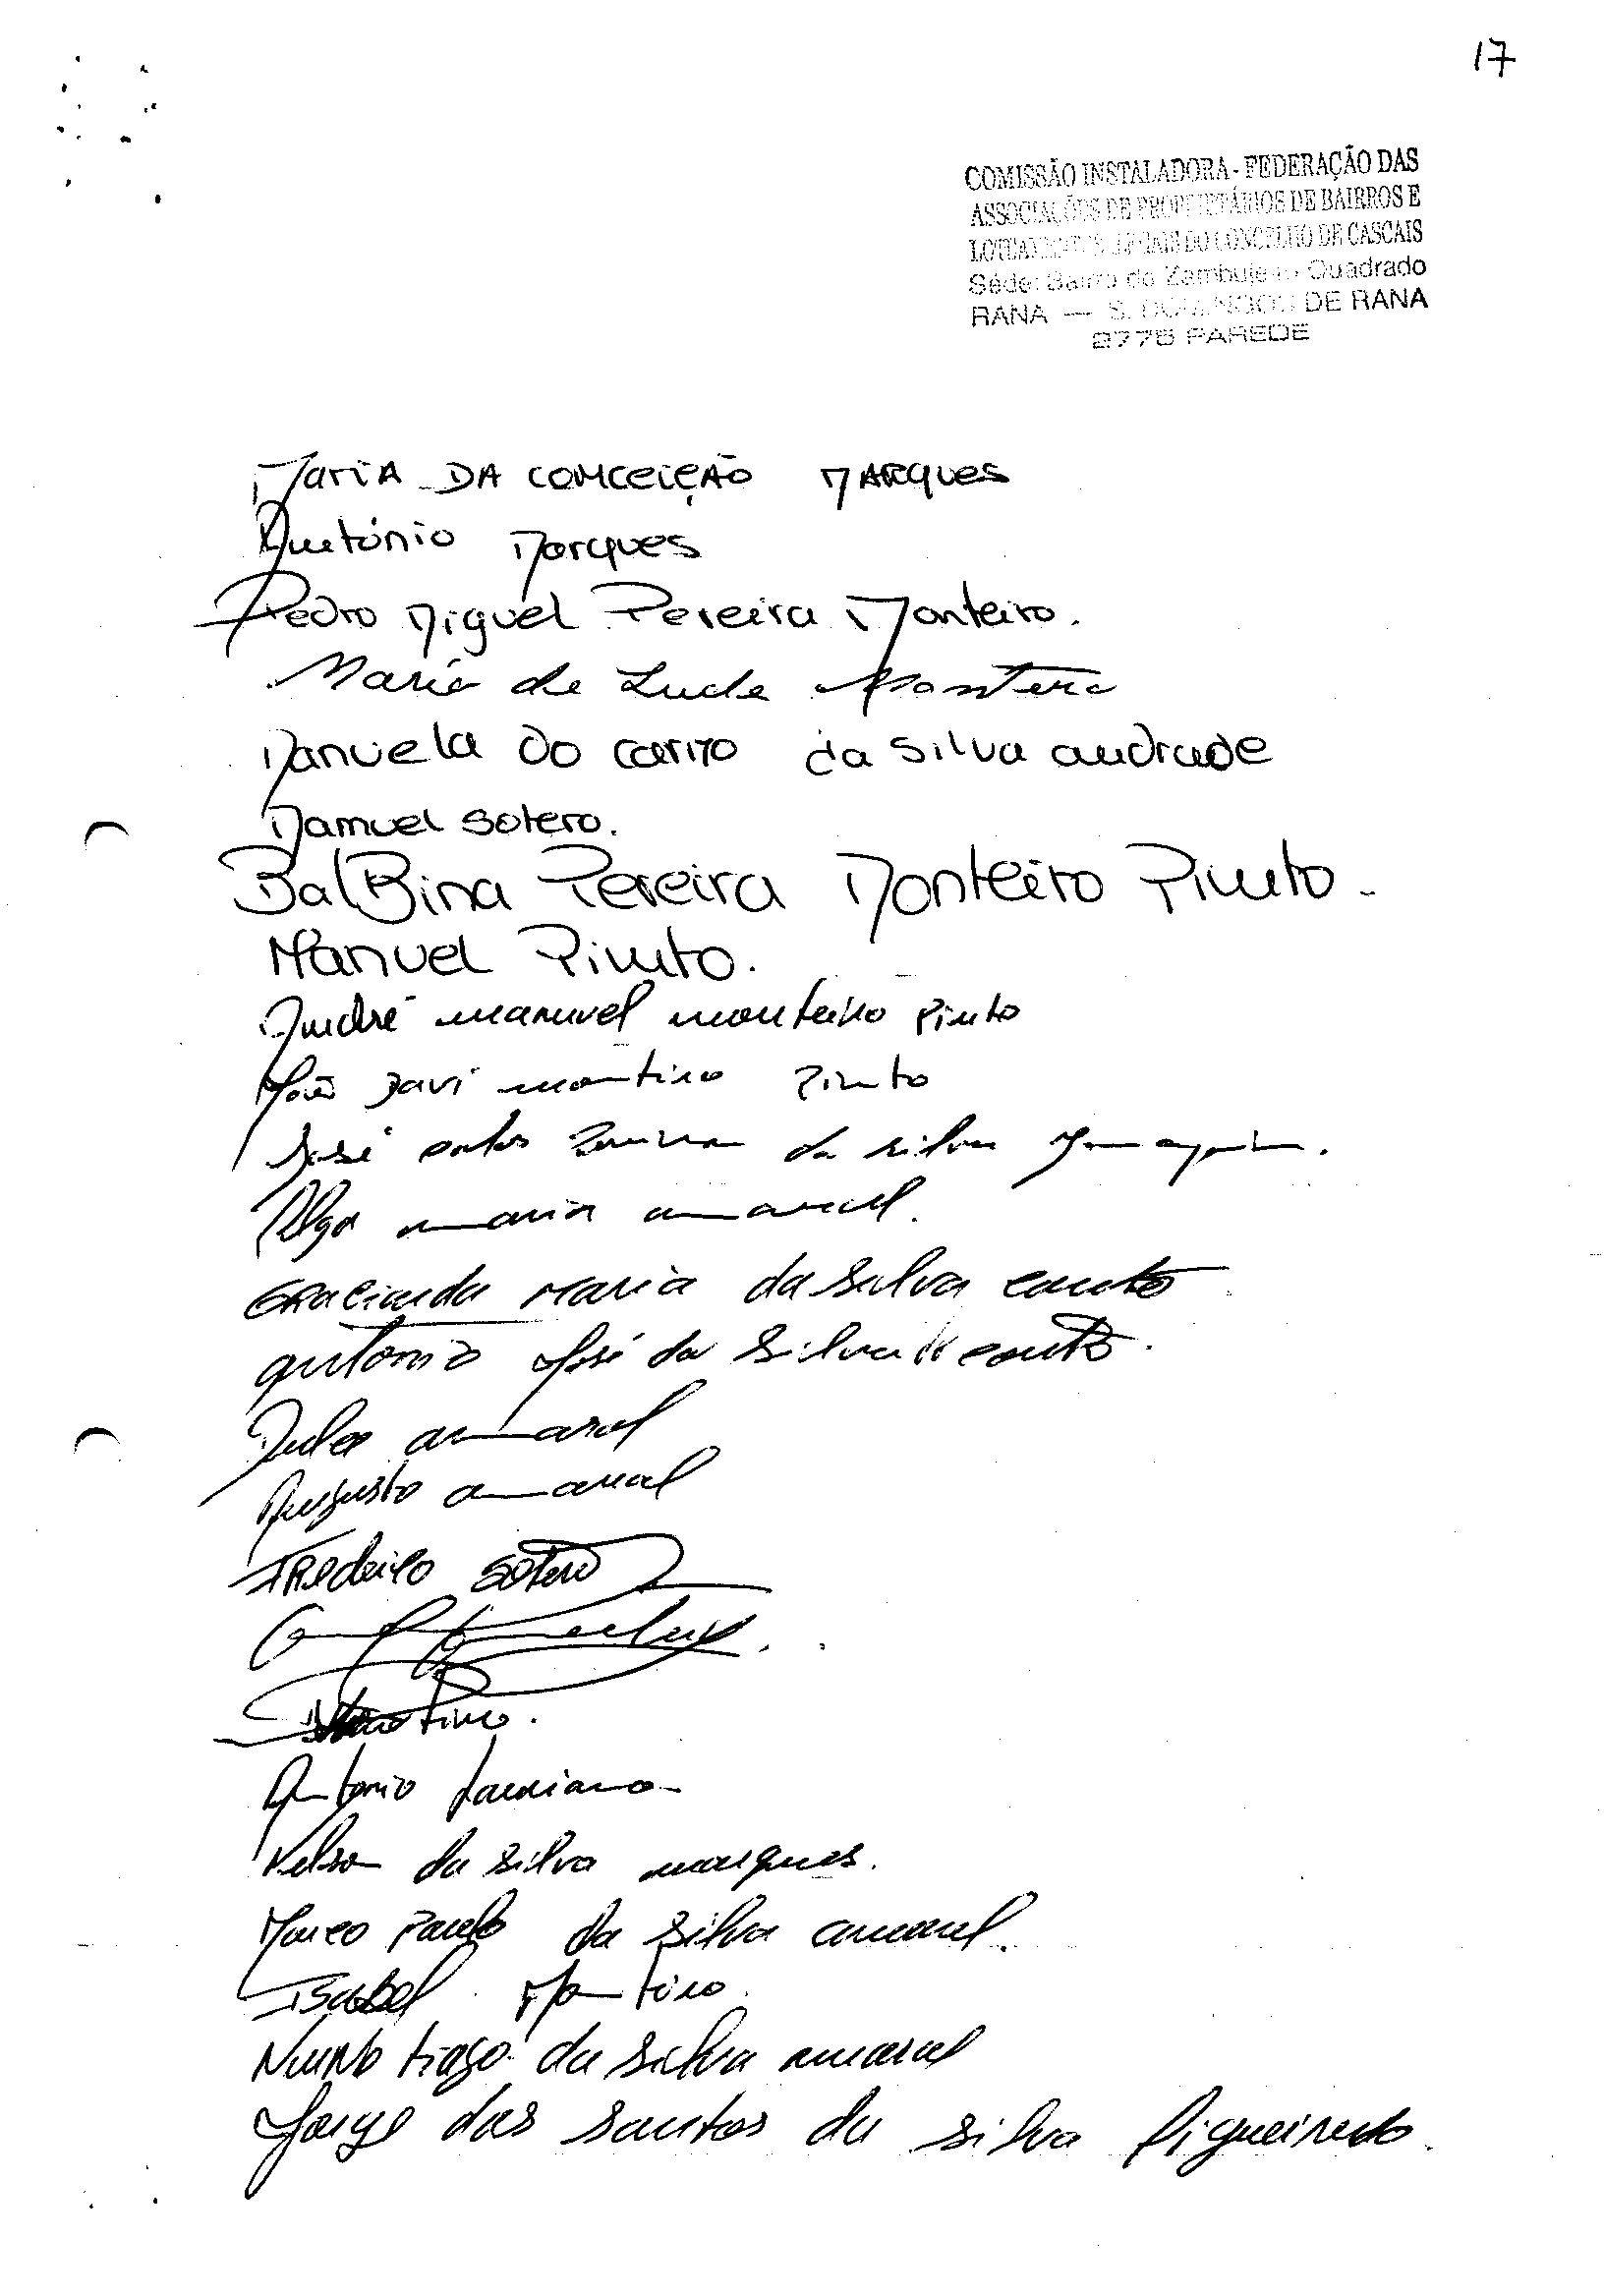 17
COMISSÃO INSTALADORA - FEDERAÇÃO DAS
ASSOCIAÇÕES DE PROPRIETÁRIOS DE BAIRROS E
DO CONCELHO DE CASCAIS
Séde: Bairro do Zambujeiro Quadrado
RANA — S. DOMINGOS DE RANA
2775 PAREDE
Maria DA COMCEIÇÃO MARQUES
António Marques
Pedro Miguel Pereira Monteiro.
Maria de Lurde
Manuela do carmo da silva andrade
Mamuel sotero.
BalBina Pereira Monteiro Pinto.
Manuel Pinto.
André manuel monteiro Pinto
João Davi Pinto
José da silva
Olga maria amaral.
Gracinda Maria da Silva couto
antonio José da Silva couto.
amaral
Augusto amaral
Frederico sotero
Antonio
Nelson da silva marques.
Marco Paulo da Silva amaral.
Isabel
Nuno tiago da silva amaral
Jorge dos santos da silva figueiredo.